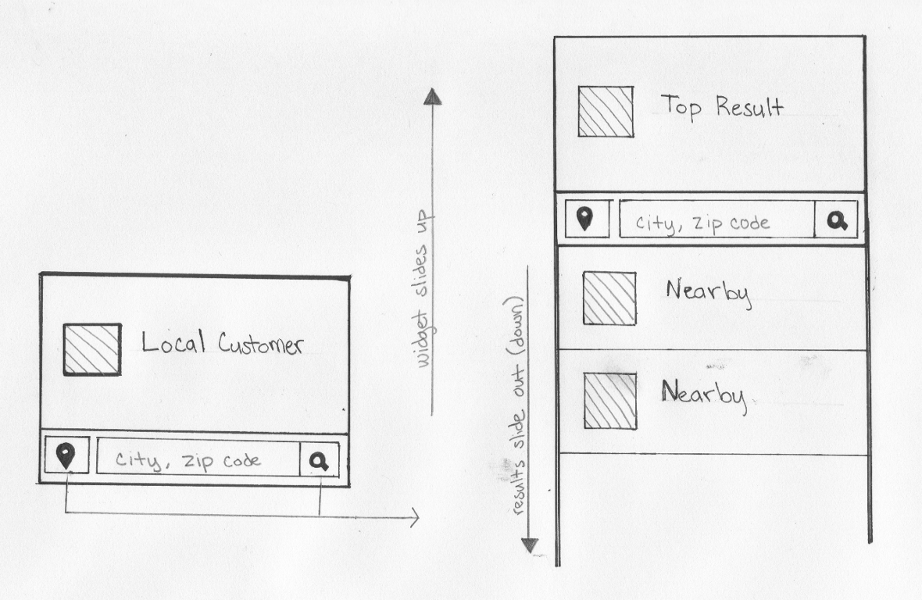 Local Customer
city, zip code
widget slides up
results slide out (down)
Top Result
city, zip code
Nearby
Nearby